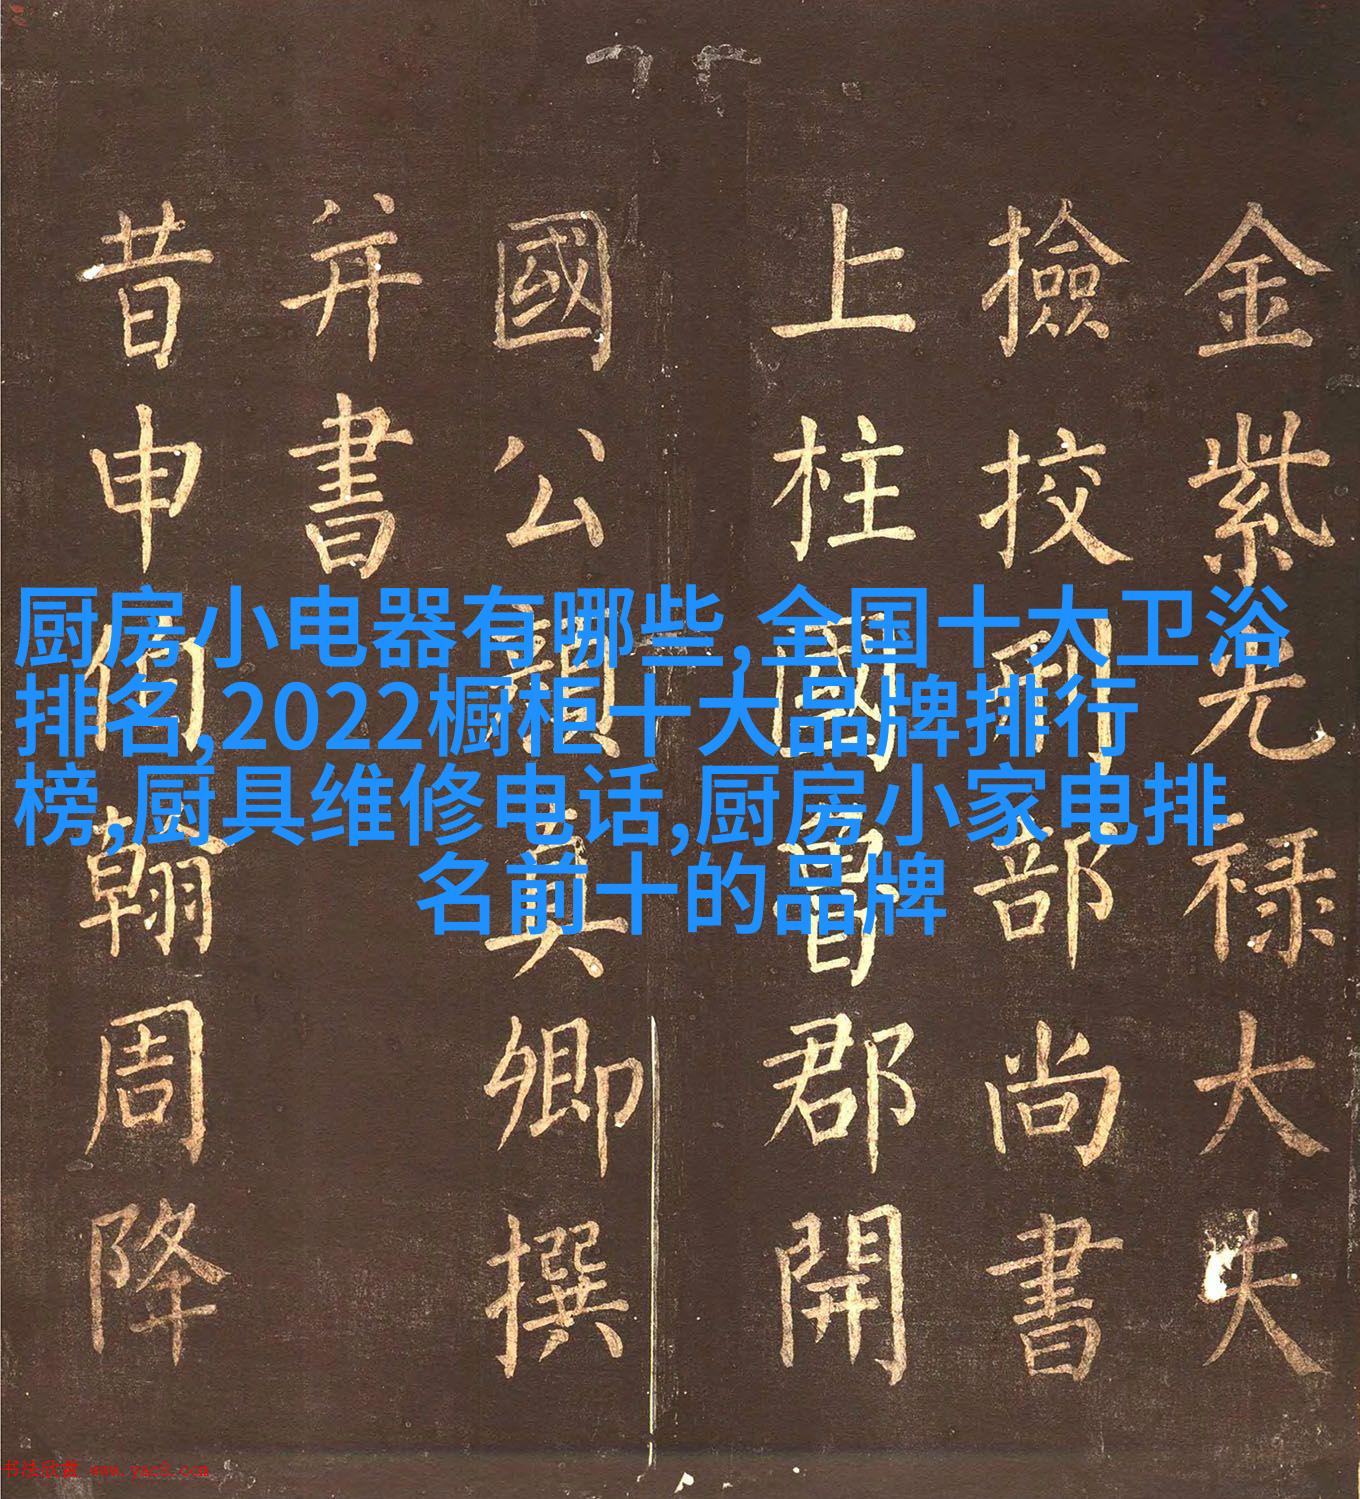 金紫光禄大夫
撿挍刑部尚書
上柱國魯郡開
國公顔真卿撰
并書
昔申伯翰周降
厨房小电器有哪些,全国十大卫浴
排名,2022橱柜十大品牌排行
榜,厨具维修电话,厨房小家电排
名前十的品牌
书法欣赏 www.yac8.com